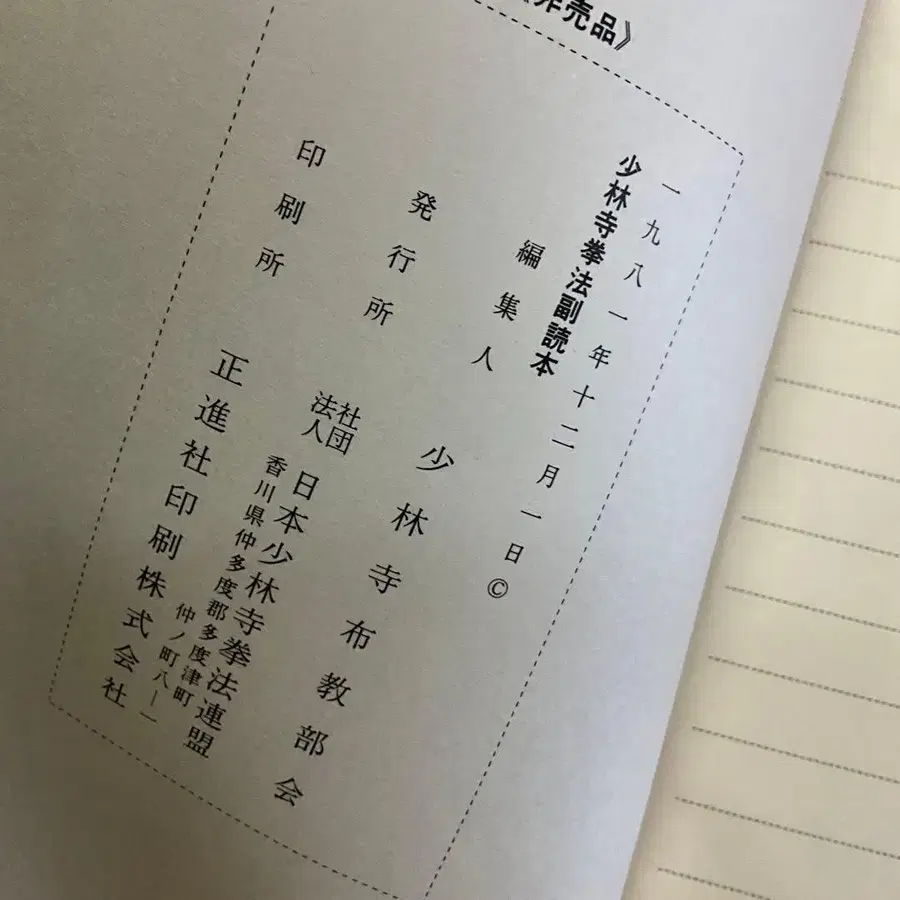 非売品》
一九八一年十二月一日©
少林寺拳法副読本
編集人 少林寺布教部会
発行所 社団法人 日本少林寺拳法連盟
香川県仲多度郡多度津町
仲ノ町八—一
印刷所 正進社印刷株式会社